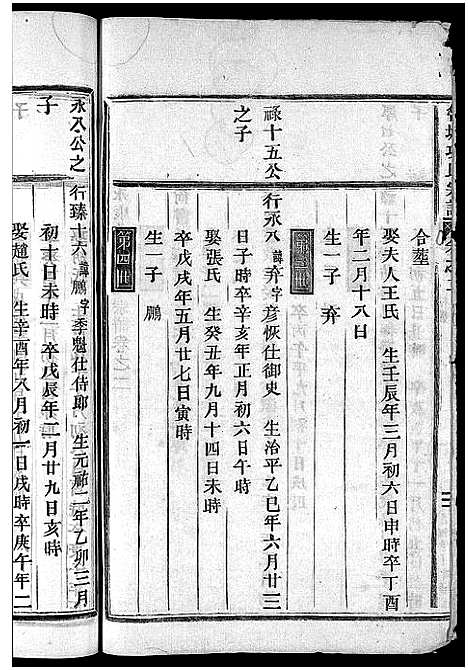 合塟
娶夫人王氏 生壬辰年三月初六日申時卒丁酉
年二月十八日
生一子 弈
祿十五公之子
行永八 諱弈字彦恢仕御史 生治平乙巳年六月廿三
日子時卒辛亥年正月初六日午時
娶張氏 生癸丑年九月十四日未時
卒戊戌年五月廿七日寅時
生一子 鵬
第四世
永八公之子
行臻十六 諱鵬字季魁仕侍郎 生元祐二年乙卯三月
初十日未時 卒戊辰年二月廿九日亥時
娶趙氏 生辛酉年八月初一日戌時卒庚午年二